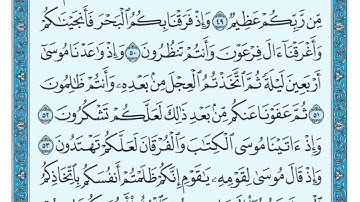 مِّن رَّبِّكُمْ عَظِيمٌ ٤٩ وَإِذْ فَرَقْنَا بِكُمُ ٱلْبَحْرَ فَأَنجَيْنَٰكُمْ
وَأَغْرَقْنَآ ءَالَ فِرْعَوْنَ وَأَنتُمْ تَنظُرُونَ ٥٠ وَإِذْ وَٰعَدْنَا مُوسَىٰٓ
أَرْبَعِينَ لَيْلَةً ثُمَّ ٱتَّخَذْتُمُ ٱلْعِجْلَ مِنۢ بَعْدِهِۦ وَأَنتُمْ ظَٰلِمُونَ
٥١ ثُمَّ عَفَوْنَا عَنكُم مِّنۢ بَعْدِ ذَٰلِكَ لَعَلَّكُمْ تَشْكُرُونَ ٥٢
وَإِذْ ءَاتَيْنَا مُوسَى ٱلْكِتَٰبَ وَٱلْفُرْقَانَ لَعَلَّكُمْ تَهْتَدُونَ ٥٣
وَإِذْ قَالَ مُوسَىٰ لِقَوْمِهِۦ يَٰقَوْمِ إِنَّكُمْ ظَلَمْتُمْ أَنفُسَكُم بِٱتِّخَاذِكُمُ